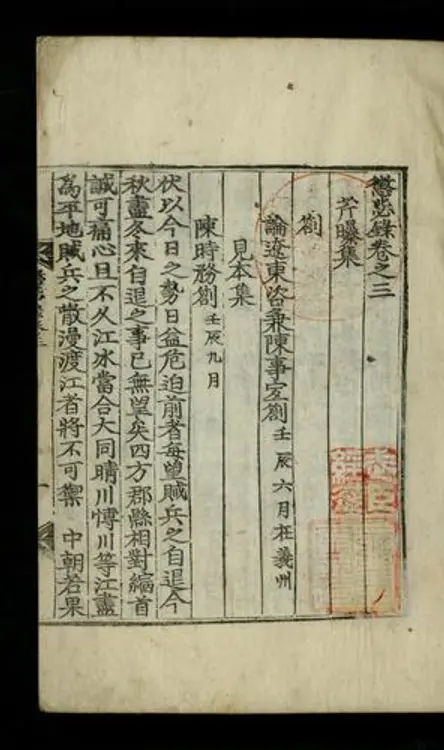 懲毖錄卷之三
芹曝集
箚
論遼東咨兼陳事宜箚 壬辰六月在義州
見本集
陳時務箚 壬辰九月
伏以今日之勢日益危迫前者每望賊兵之自退今
秋盡冬來自退之事已無望矣四方郡縣相對縮首
誠可痛心且不久江氷當合大同晴川愽川等江盡
爲平地賊兵之散漫渡江者將不可禦 中朝若果